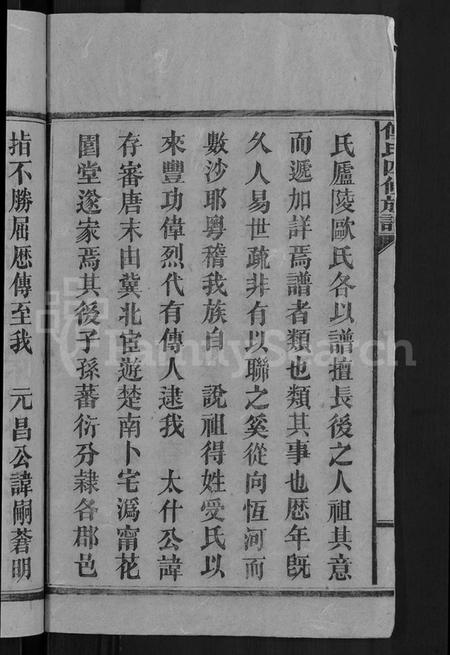 氏廬陵歐氏各以譜擅長後之人祖其意
而遞加詳焉譜者類也類其事也歷年旣
久人易世疏非有以聯之奚從向恆河而
數沙耶粵稽我族自　說祖得姓受氏以
來豐功偉烈代有傳人逮我　太什公諱
存審唐末由冀北宦遊楚南卜宅溈甯花
園堂遂家焉其後子孫蕃衍分隸各郡邑
指不勝屈歷傳至我　元昌公諱嗣蒼明
氏四修族譜
FamilySearch